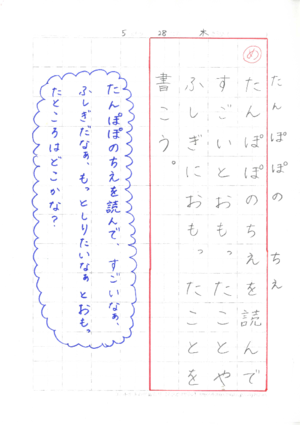 5 28 木
たんぽぽの ちえ
め
たんぽぽのちえを読んで
すごいとおもったことや
ふしぎにおもったことを
書こう。
たんぽぽのちえを読んで、すごいなぁ、
ふしぎだなぁ、もっとしりたいなぁとおもっ
たところはどこかな?